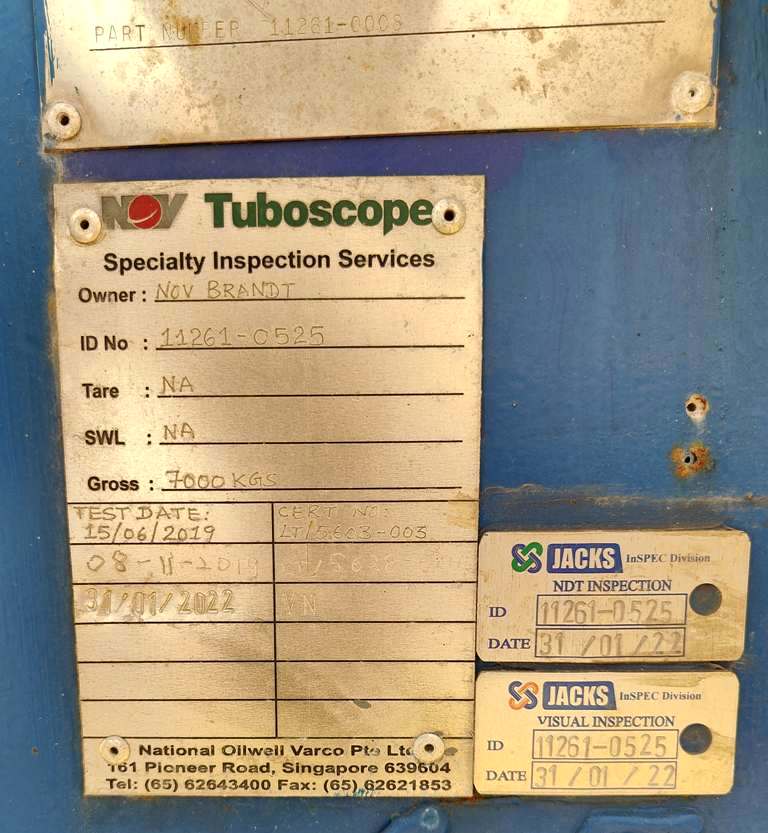 PART NUMBER 11261-0008
NOV Tuboscope
Specialty Inspection Services
Owner : NOV BRANDT
ID No : 11261-0525
Tare : NA
SWL : NA
Gross : 7000KGS
TEST DATE: CERT NO:
15/06/2019 LT/5603-003
08-11-2019
31/01/2022 VN
National Oilwell Varco Pte Ltd
161 Pioneer Road, Singapore 639604
Tel: (65) 62643400 Fax: (65) 62621853
JACKS InSPEC Division
NDT INSPECTION
ID 11261-0525
DATE 31/01/22
JACKS InSPEC Division
VISUAL INSPECTION
ID 11261-0525
DATE 31/01/22